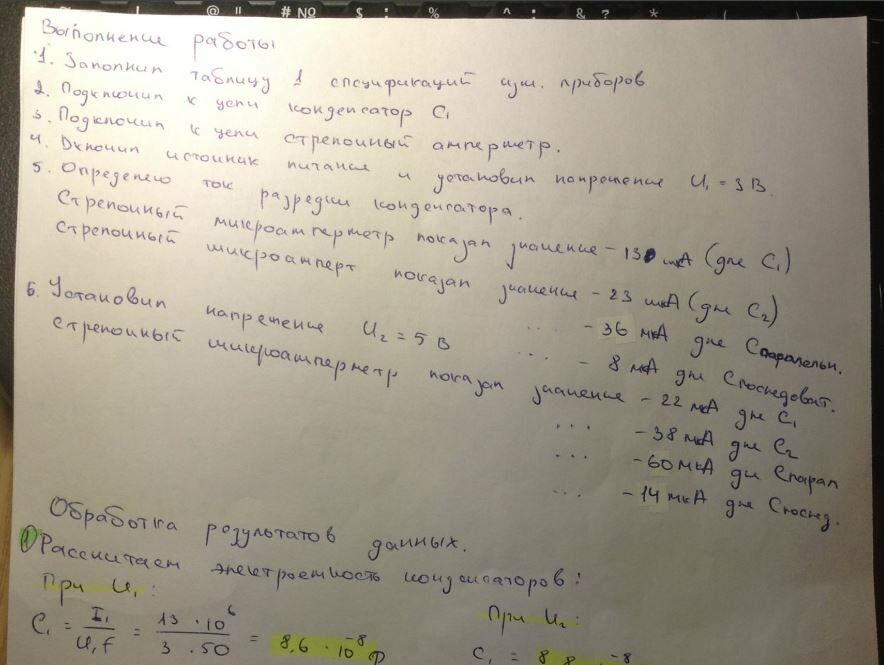 Выполнение работы
1. Заполнил таблицу 1 спецификаций изм. приборов
2. Подключил к цепи конденсатор C₁
3. Подключил к цепи стрелочный амперметр.
4. Включил источник питания и установил напряжение U₁ = 3 В.
5. Определено ток разрядки конденсатора.
Стрелочный микроамперметр показал значение - 13 мкА (для C₁)
Стрелочный микроамперт показал значение - 23 мкА (для C₂)
... - 36 мкА для Cпаралельн.
... - 8 мкА для Cпоследоват.
6. Установил напряжение U₂ = 5 В
Стрелочный микроамперметр показал значение - 22 мкА для C₁
... - 38 мкА для C₂
... - 60 мкА для Cпарал
... - 14 мкА для Cпослед.
Обработка результатов данных.
1 Рассчитаем электроемкость конденсаторов:
При U₁:
C₁ = I₁ / U₁f = 13 · 10⁶ / 3 · 50 = 8,6 · 10⁻⁸ Ф
При U₂:
C₁ = 8,8 · 10⁻⁸